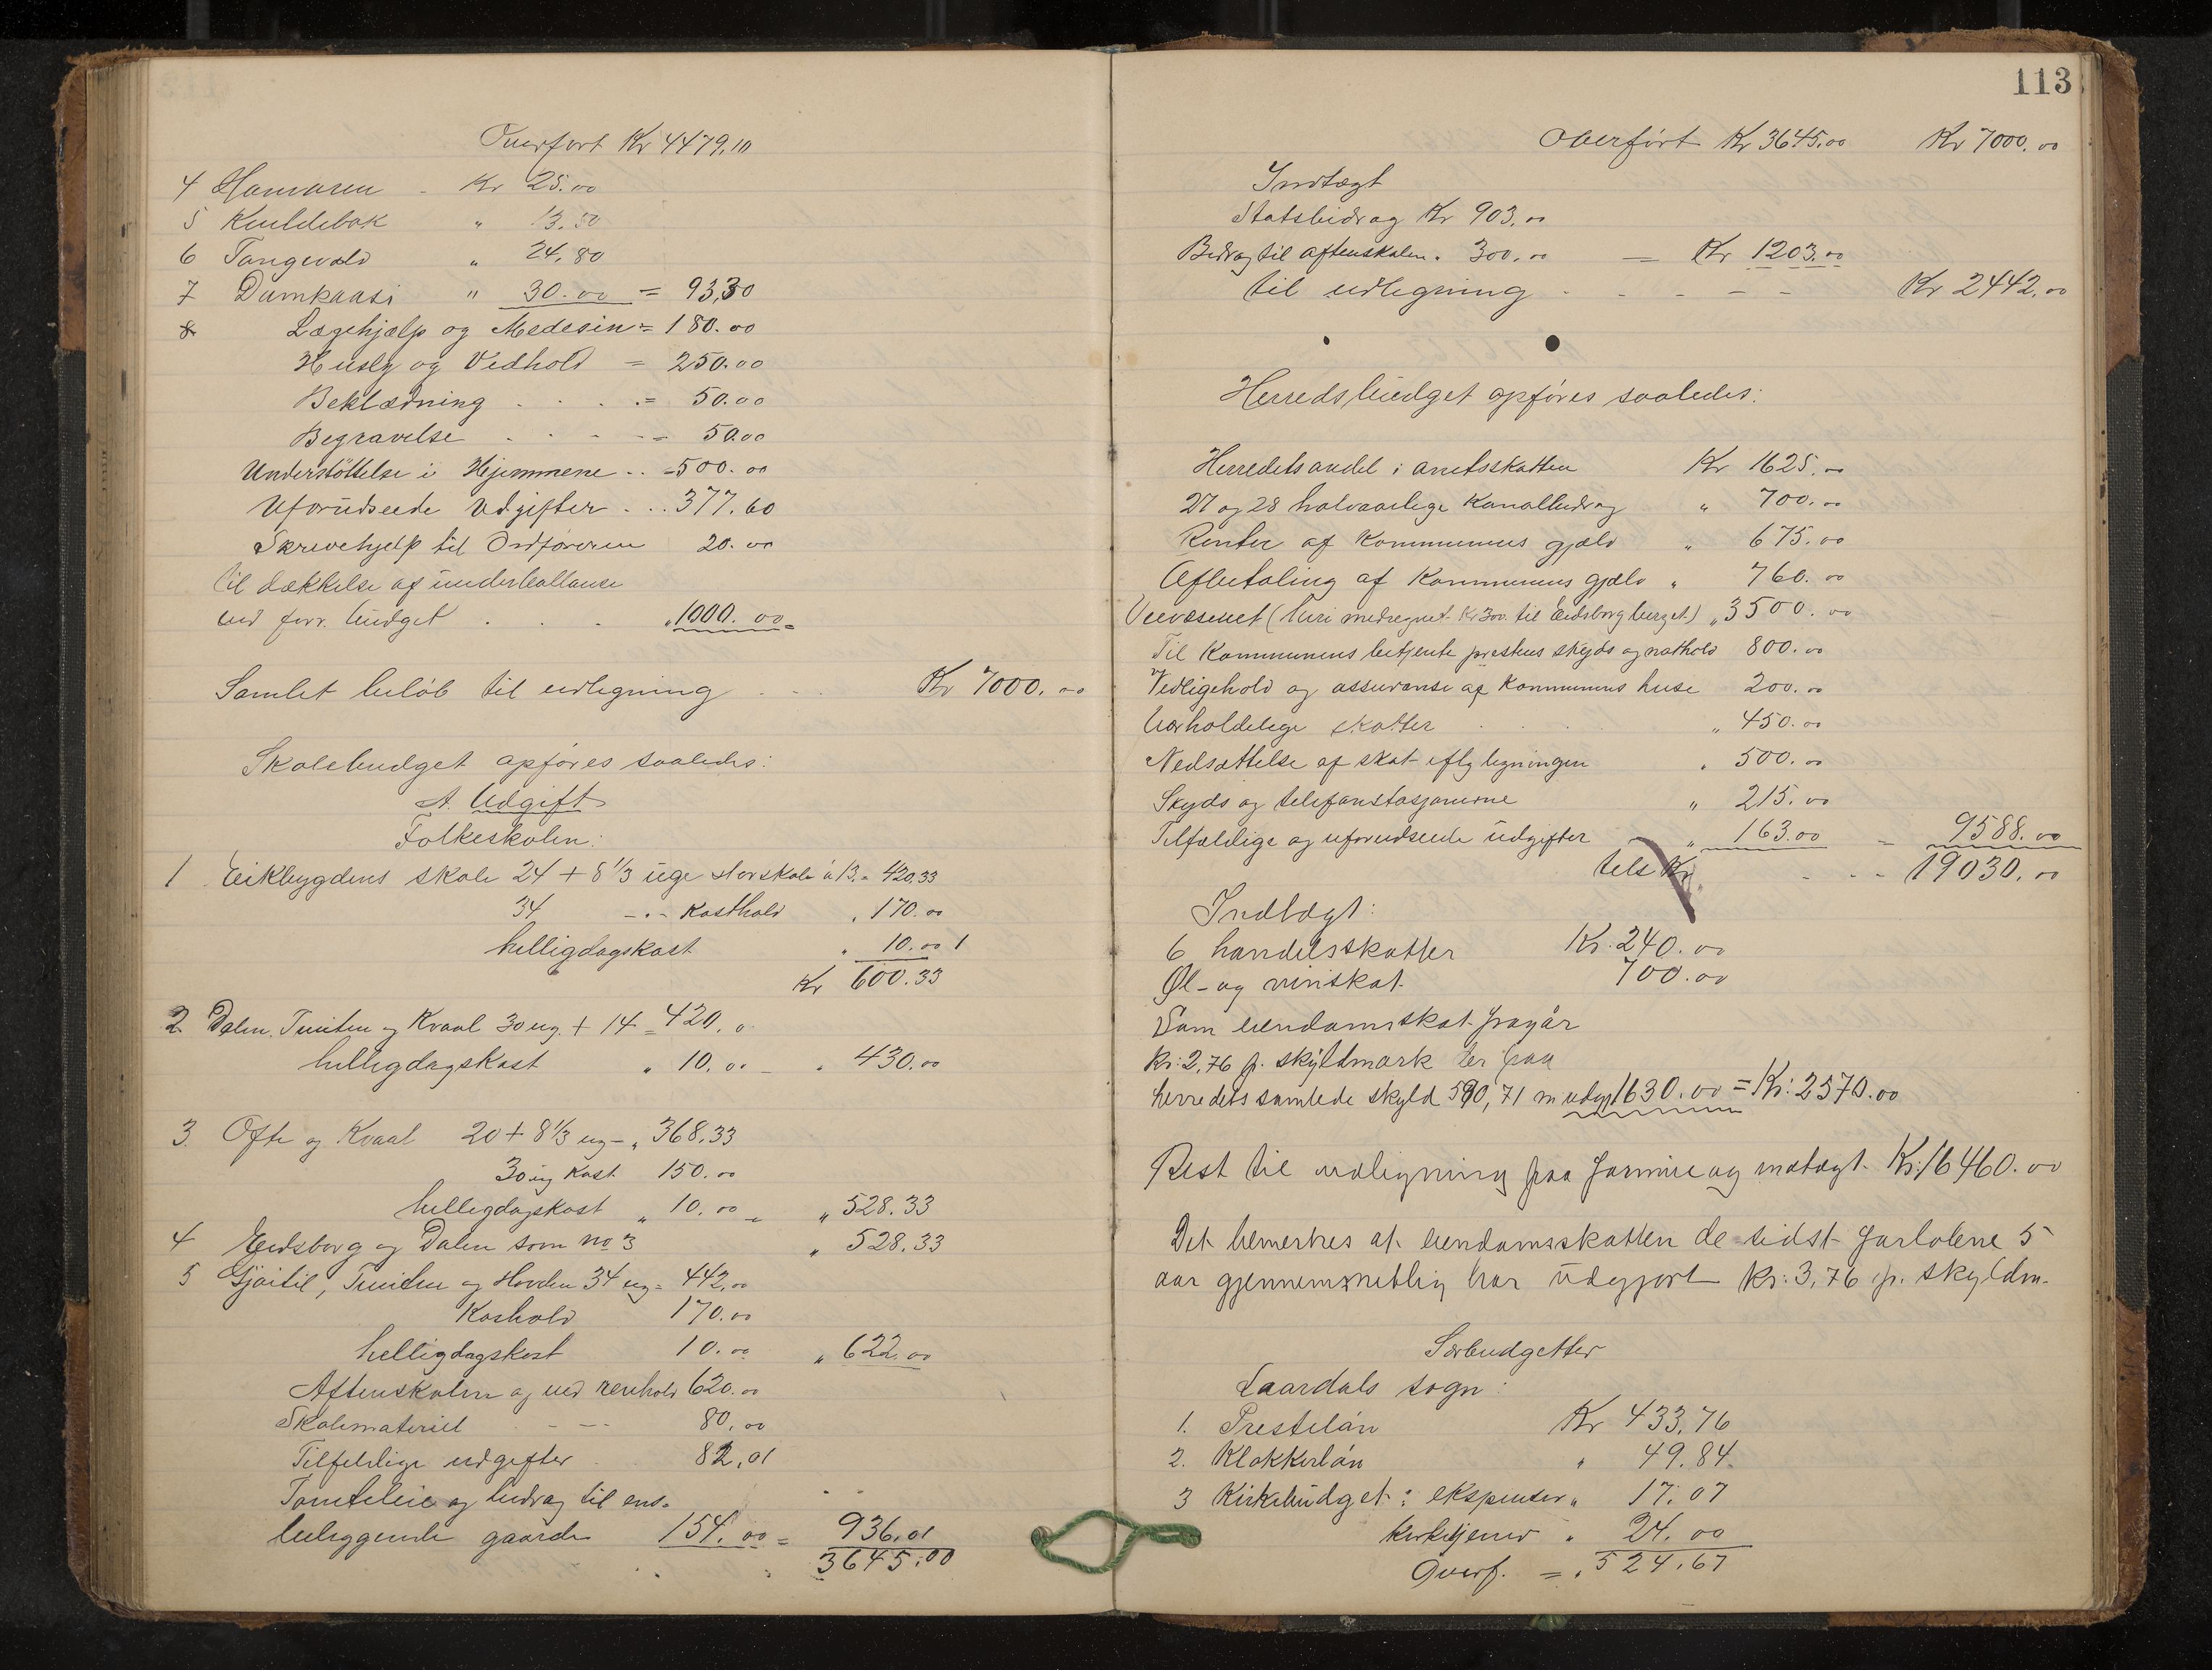 Overført Kr 4479.10
4 Hamaren - Kr 25.00
5 Kuldebak " 13.50
6 Tangevald " 24.80
7 Dumkaasi " 30.00 = 93,30
8 Lægehjælp og Medesin = 180.00
Husly og Vedhold = 250.00
Beklædning . . . .= 50.00
Begravelse . . . -= 50.00
Understøttelse i Hjemmene .. =500.00
Uforudseede Udgifter . .. 377.60
Skrivehjelp til Ordføreren 20.00
til dækkelse af underballanse
ved forr. budget . . . "1000.00=
Samlet beløb til udligning . . . Kr 7000.00
Skolebudget opføres saaledes:
A. Udgift
Folkeskolen:
1 Eikbygdens skole 24 + 8 1/3 uge storskole à 13. = 420,33
34 -"- Kosthold " 170.00
helligdagskost " 10.00 1
Kr 600.33
2 Dalen, Tveiten og Kvaal 30 ug. + 14 = 420.0
helligdagskost " 10.00 - " 430.00
3. Ofte og Kvaal 20 + 8 1/3 ug - " 368.33
30 ug Kost 150.00
helligdagskost " 10.00 = " 528.33
4 Eidsborg og Dalen som no 3 " 528.33
5 Gjøitil, Tveiten og Hovden 34 ug = 442.00
Koshold 170.00
helligdagskost 10.00 " 622.00
Aftenskolen og ved renhold 620.00
Skolemateriel - -- 80.00
Tilfeldige udgifter . 82,01
Tomteleie og bidrag til ens-
beliggende gaarde 154.00 = 936,01
3645.00
113
Overført Kr 3645.00 Kr 7000.00
Indtægt
Statsbidrag Kr 903.00
Bidrag til aftenskolen " 300.00 = Kr 1203.00
til udligning - - - - - Kr 2442.00
Herredsbudget opføres saaledes:
Herredets andel i amtsskatten Kr 1625.00
27 og 28 halvaarlige Kanalbidrag " 700.00
Renter af Kommunens gjæld " 675.00
Afbetaling af Kommunens gjæld " 760.00
Veivæsenet (heri medregnet Kr 300 til Eidsborg berget) " 3500.00
Til Kommunens betjente prestens skyds og nathold 800.00
Vedligehold og assuranse af Kommunens huse 200.00
Uerholdelege skatter . . . " 450.00
Nedsættelse af skat eflg ligningen " 500.00
Skyds og telefonstasjonerne " 215.00
Tilfældige og uforudseede udgifter " 163.00 = 9588.00
tils Kr. - - - 19030.00
Indtægt:
6 handelsskatter Kr. 240.00
Øl- og vinskat 700.00
Som eiendomsskat fragår
kr: 2,76 p. skyldmark der paa
herredets samlede skyld 590,71 m udgj 1630.00 = Kr: 2570.00
Rest til udligning paa formue og indtægt Kr: 16460.00
Det bemerkes at eiendomsskatten de sidst forløbene 5
aar gjennemsnetlig har udgjort kr: 3,76 p. skyldm.
Særbudgetter
Laardals sogn:
1. Prestelån Kr 433,76
2. Klokkerlån " 49.84.
3 Kirkebudget: ekspenser " 17.07
kirketjener " 24.00
Overf. = " 524.67